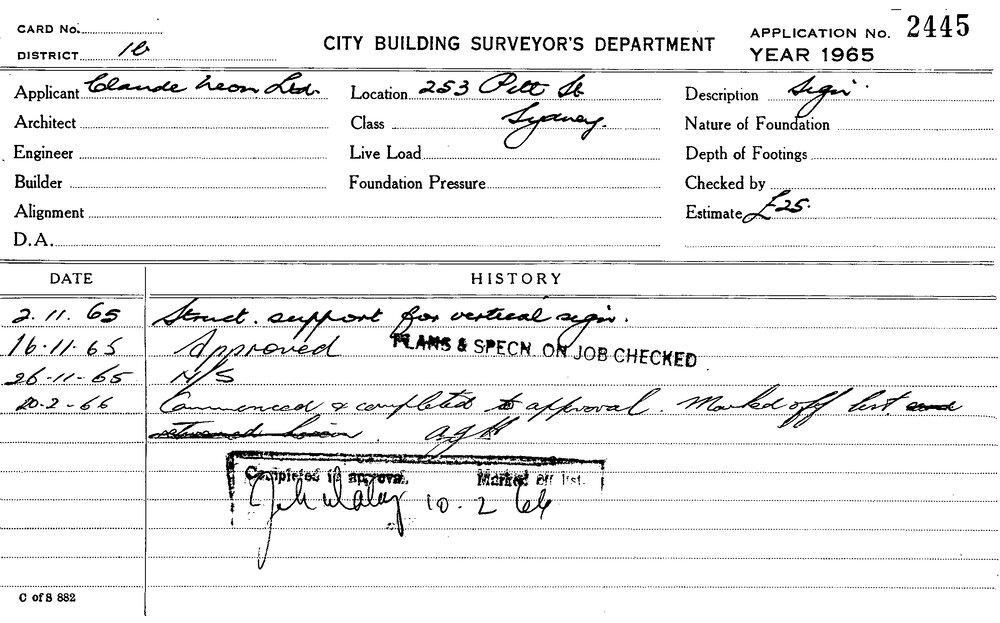 CARD No.
DISTRICT 1b
CITY BUILDING SURVEYOR'S DEPARTMENT
APPLICATION No. 2445
YEAR 1965
Applicant Claude Neon Ltd.
Location 253 Pitt St
Description Sign
Architect
Class Sydney.
Nature of Foundation
Engineer
Live Load
Depth of Footings
Builder
Foundation Pressure
Checked by
Alignment
Estimate £25.
D.A.
DATE HISTORY
2.11.65 Struct. support for vertical sign.
16.11.65 Approved PLANS & SPECN. ON JOB CHECKED
26.11.65 N/S
10.2.66 Commenced & completed to approval. Marked off list and
returned
Completed if approval. Marked off list.
10.2.66
C of S 882